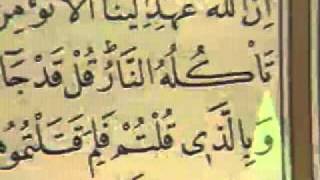 اِنَّ اللّٰهَ عَهِدَ اِلَيْنَٓا اَلَّا نُؤْمِنَ
تَأْكُلُهُ النَّارُ قُلْ قَدْ جَٓا
وَبِالَّذٖى قُلْتُمْ فَلِمَ قَتَلْتُمُوهُ